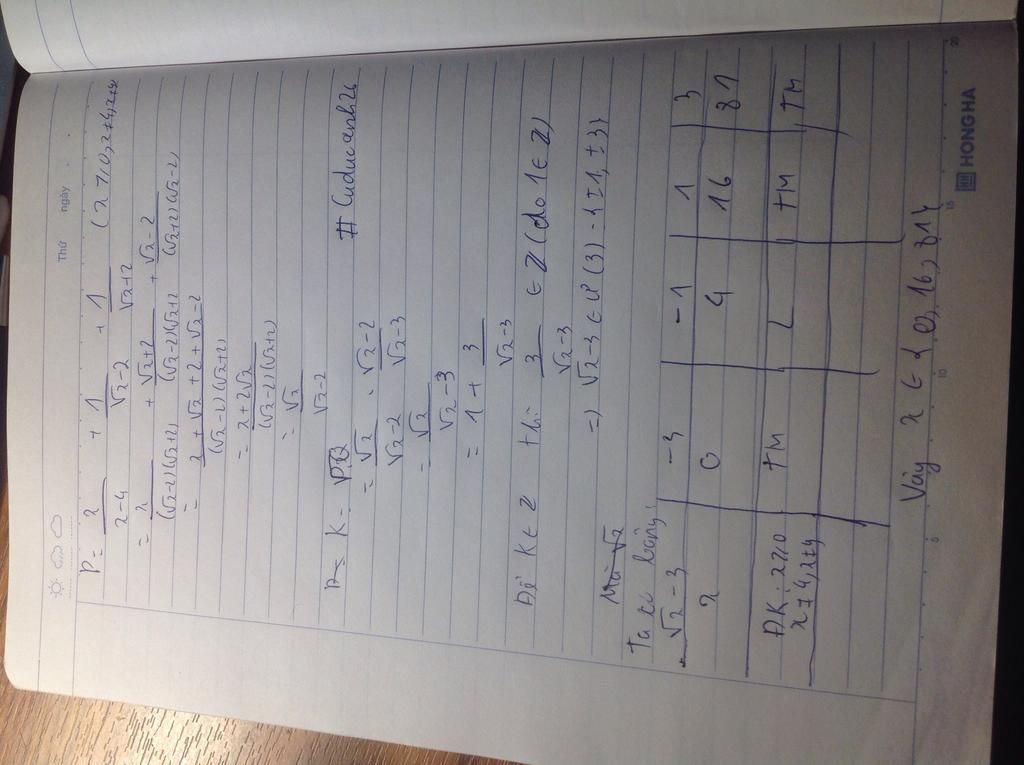 Thứ ngày
P = x/x-4 + 1/√x-2 + 1/√x+2 (x ≥ 0, x ≠ 4, x ≠ 9)
= x/(√x-2)(√x+2) + √x+2/(√x-2)(√x+2) + √x-2/(√x+2)(√x-2)
= x + √x + 2 + √x - 2/(√x-2)(√x+2)
= x + 2√x/(√x-2)(√x+2)
= √x/√x-2
K = P.Q # Cuducanh26
= √x/√x-2 . √x-2/√x-3
= √x/√x-3
= 1 + 3/√x-3
Để K ∈ Z thì 3/√x-3 ∈ Z (do 1 ∈ Z)
=) √x-3 ∈ Ư(3) = {±1, ±3}
Ta có bảng:
√x-3 -3 -1 1 3
x 0 4 16 81
Đ.K: x ≥ 0 TM L TM TM
x ≠ 4, x ≠ 9
Vậy x ∈ {0, 16, 81}
5 10 15 20
HONG HA